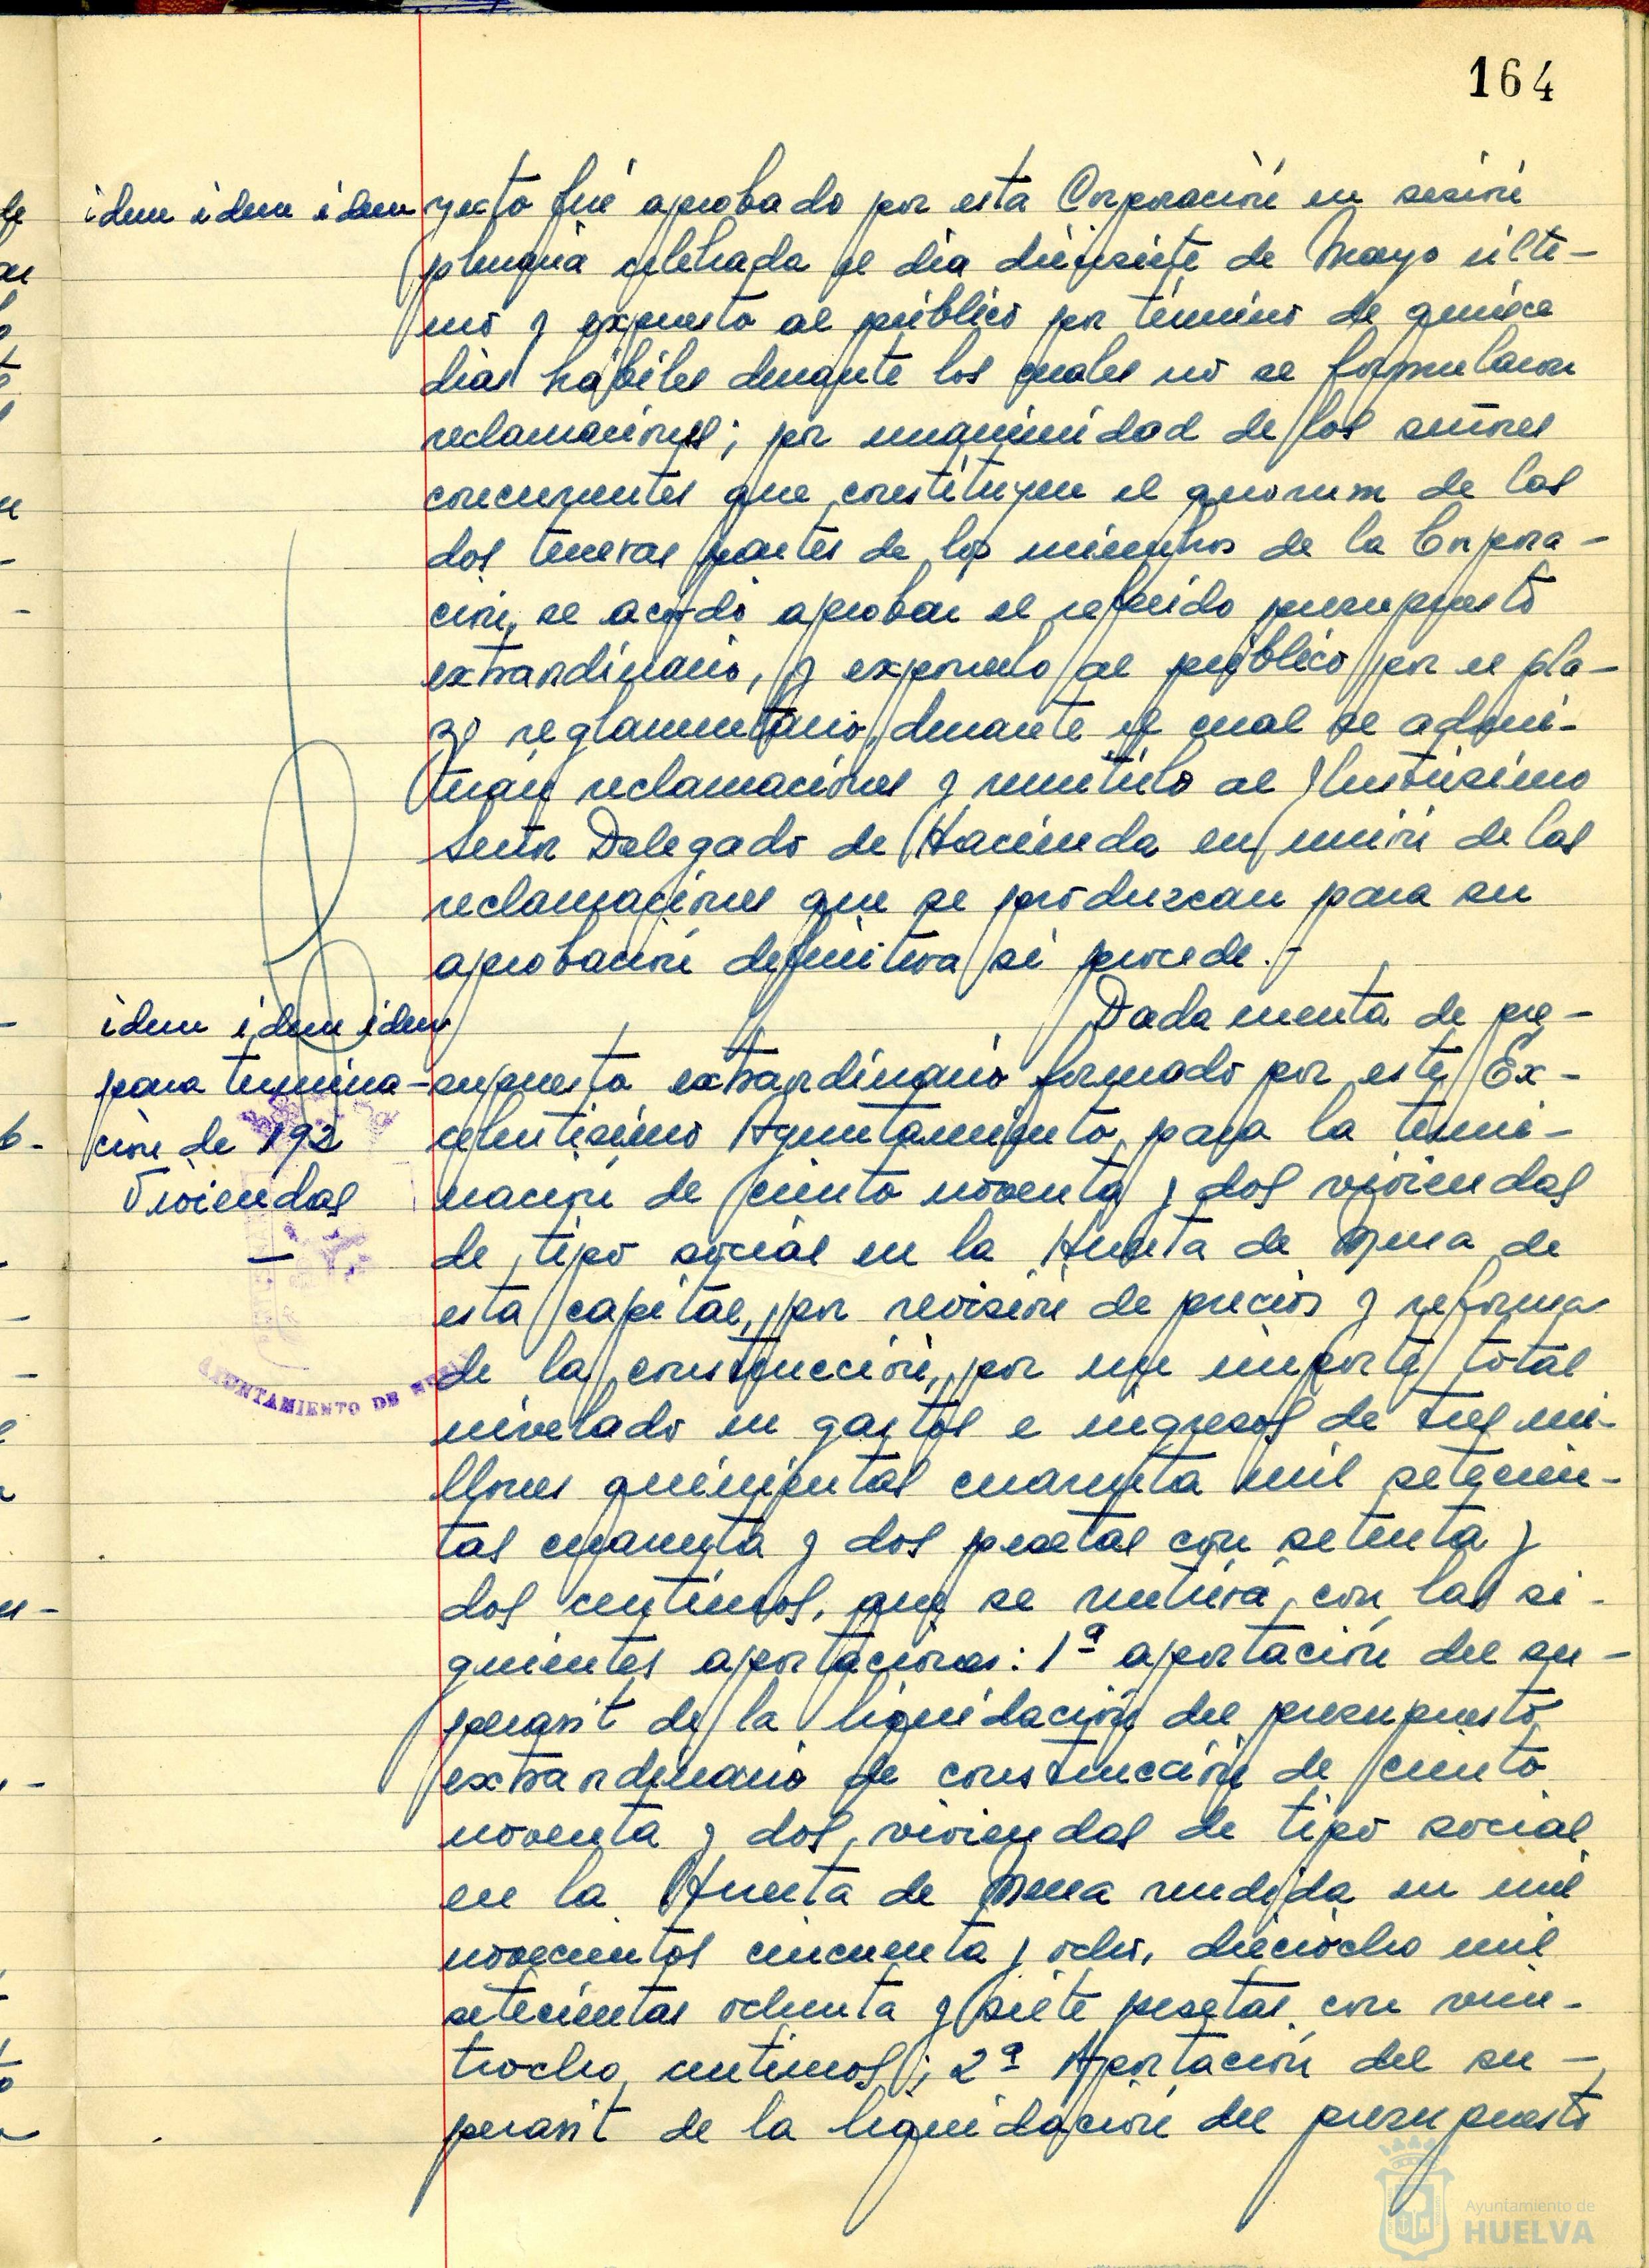 164
idem idem idem
yecto fué aprobado por esta Corporación en sesión
plenaria celebrada el dia diecisiete de Mayo últi-
mo y expuesto al público por término de quince
dias hábiles durante los cuales no se formularon
reclamaciones; por unanimidad de los señores
concurrentes que constituyen el quorum de las
dos terceras partes de los miembros de la Corpora-
ción, se acordó aprobar el referido presupuesto
extraordinario, y exponerlo al público por el pla-
zo reglamentario, durante el cual se admi-
tirán reclamaciones y remitirlo al Ilustrisimo
Señor Delegado de Hacienda en unión de las
reclamaciones que se produzcan para su
aprobación definitiva si procede.-
idem idem idem
para termina-
ción de 192
Viviendas
—
Dada cuenta de pre-
supuesto extraordinario formado por este Ex-
celentisimo Ayuntamiento, para la termi-
nación de ciento noventa y dos viviendas
de tipo social en la Huerta de Mena de
esta capital, por revisión de precios y reforma
de la construcción, por un importe total
nivelado en gastos e ingresos de tres mi-
llones quinientas cuarenta mil setecien-
tas cuarenta y dos pesetas con setenta y
dos centimos, que se nutrirá, con las si-
guientes aportaciones: 1ª aportación del su-
peravit de la liquidación del presupuesto
extraordinario de construcción de ciento
noventa y dos, viviendas de tipo social
en la Huerta de Mena rendida en mil
novecientos cincuenta y ocho, dieciocho mil
setecientas ochenta y siete pesetas con vein-
tiocho centimos; 2ª Aportación del su-
peravit de la liquidación del presupuesto
AYUNTAMIENTO DE
Ayuntamiento de
HUELVA